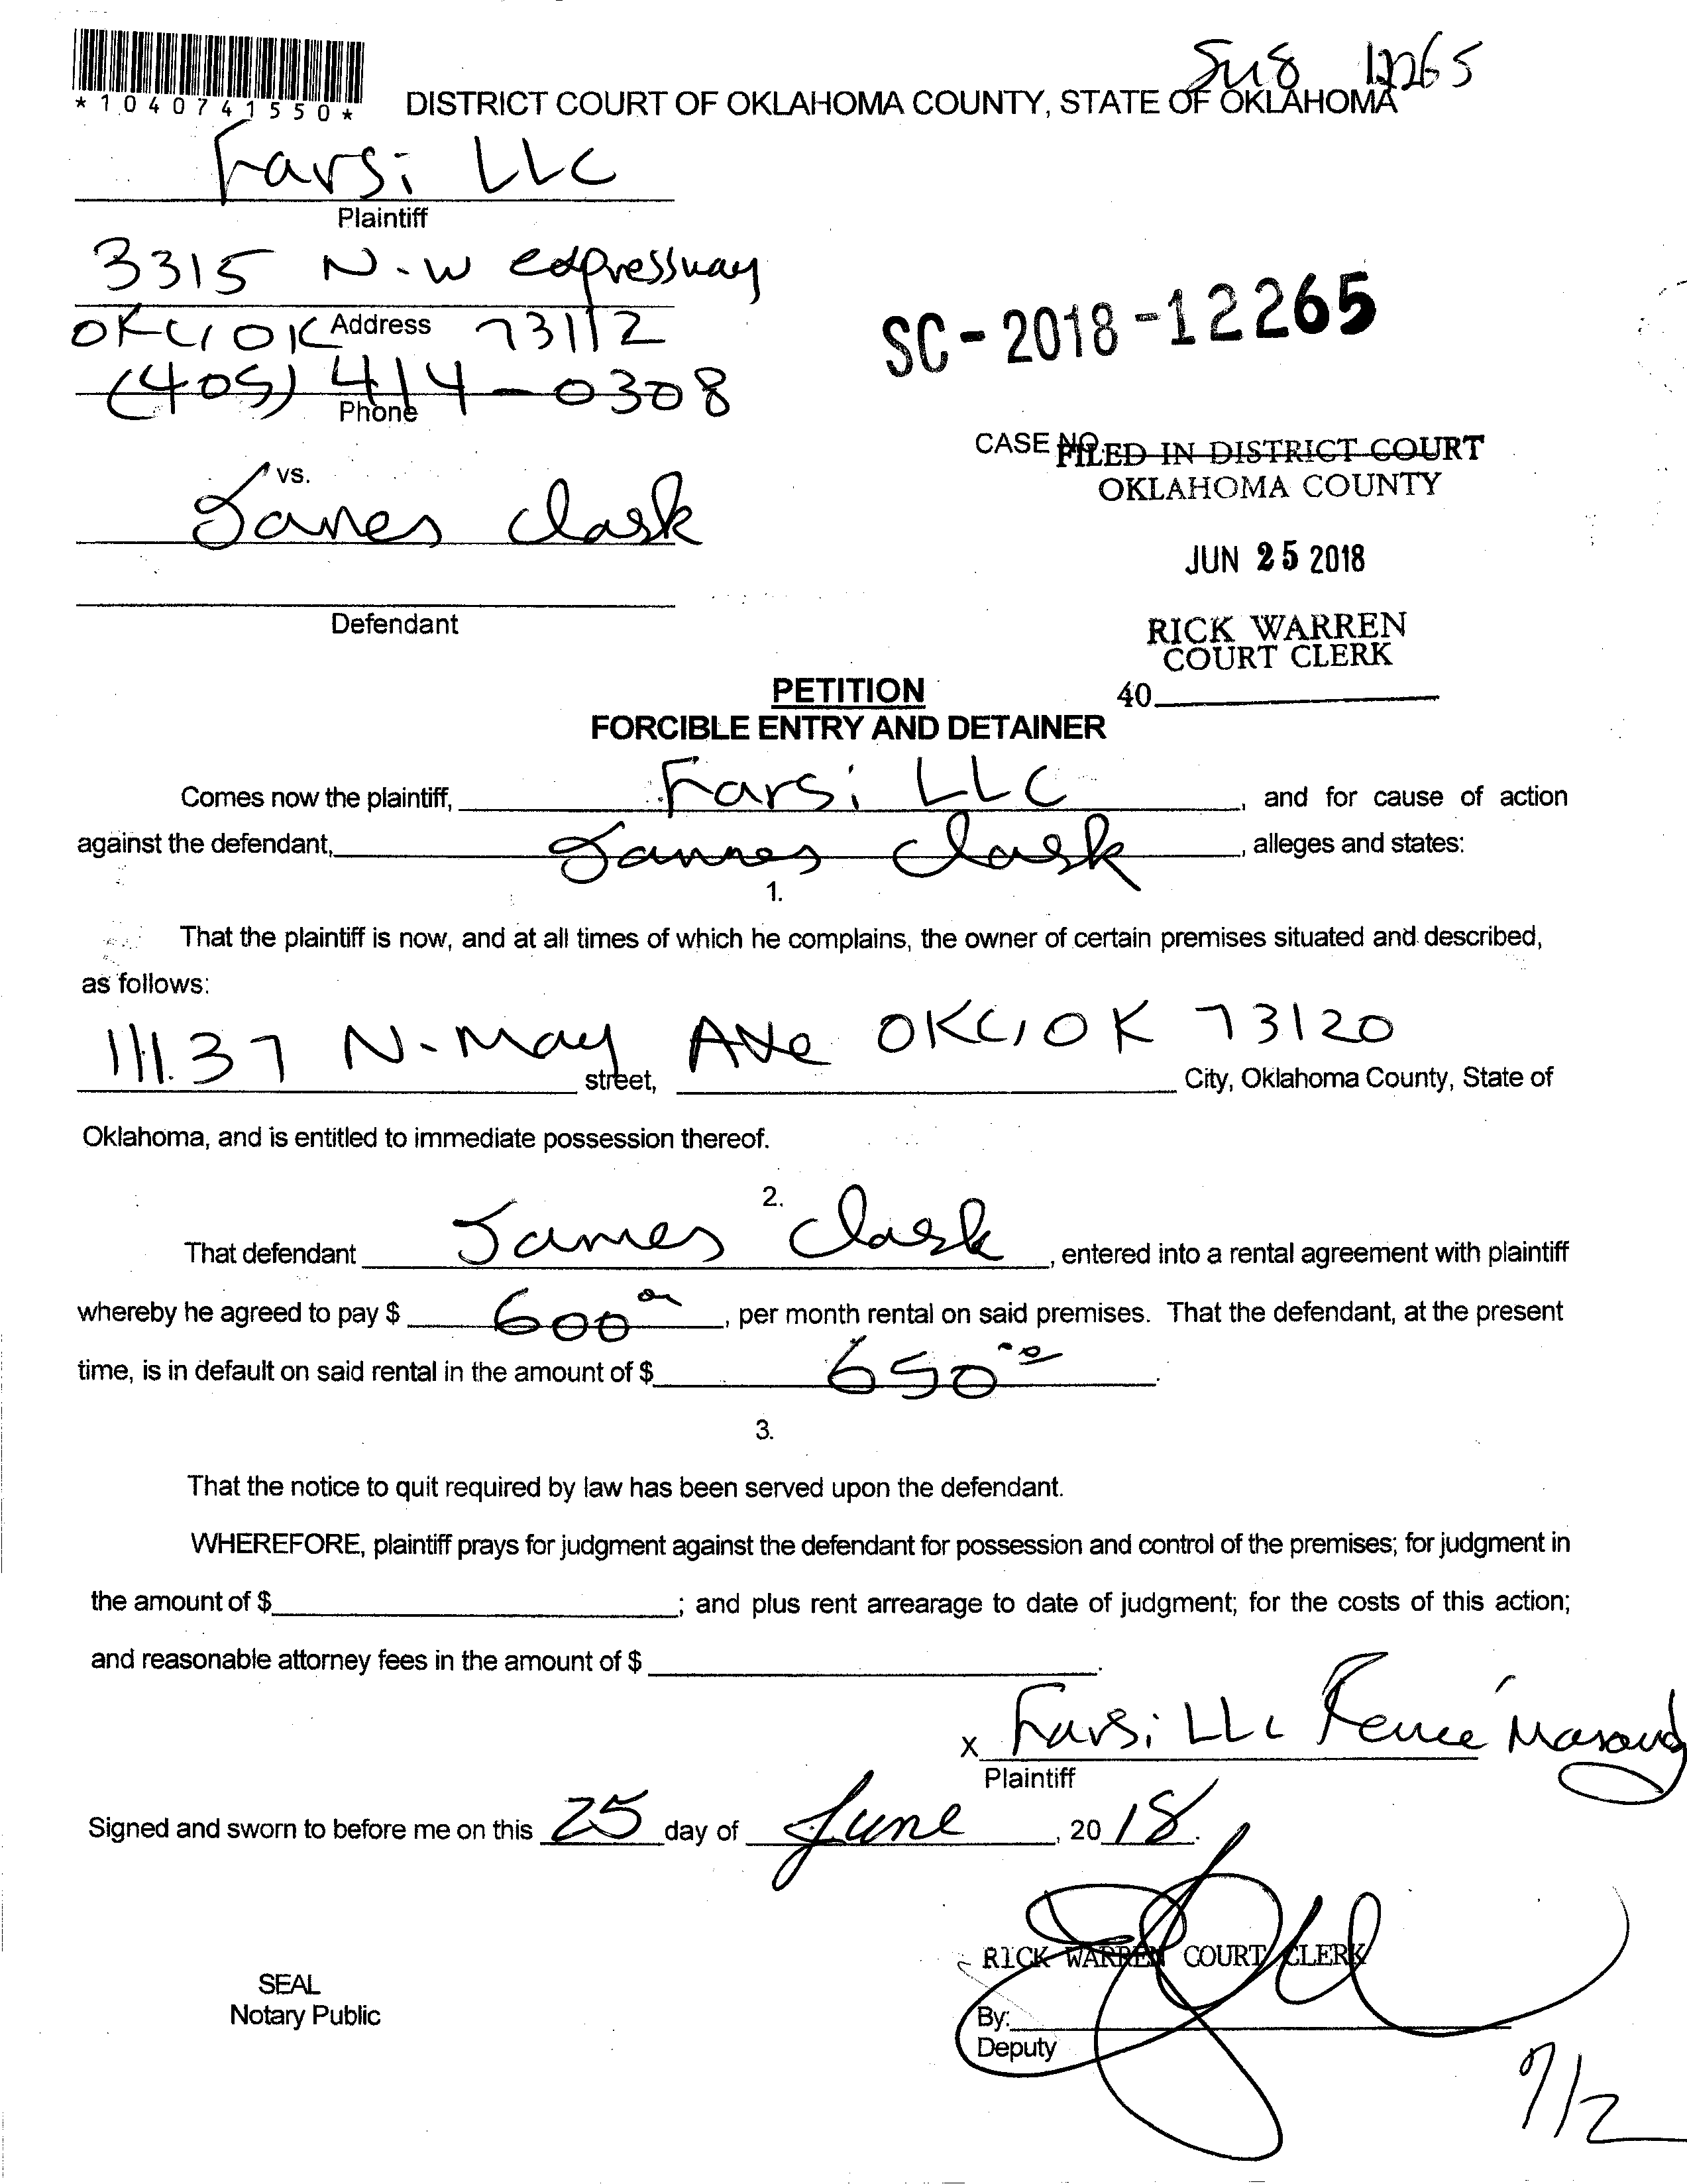 12265
*1040741550*
DISTRICT COURT OF OKLAHOMA COUNTY, STATE OF OKLAHOMA
Farsi LLC
Plaintiff
3315 N.W expressway
OKC, OK 73112
Address
(405) 414-0308
Phone
SC-2018-12265
CASE NO.
FILED IN DISTRICT COURT
OKLAHOMA COUNTY
vs.
James Clark
JUN 25 2018
Defendant
RICK WARREN
COURT CLERK
40
PETITION
FORCIBLE ENTRY AND DETAINER
Comes now the plaintiff, Farsi LLC, and for cause of action
against the defendant, James Clark, alleges and states:
1.
That the plaintiff is now, and at all times of which he complains, the owner of certain premises situated and described,
as follows:
11137 N. May Ave OKC, OK 73120
street, City, Oklahoma County, State of
Oklahoma, and is entitled to immediate possession thereof.
2.
That defendant James Clark, entered into a rental agreement with plaintiff
whereby he agreed to pay $ 600 00, per month rental on said premises. That the defendant, at the present
time, is in default on said rental in the amount of $ 650 00.
3.
That the notice to quit required by law has been served upon the defendant.
WHEREFORE, plaintiff prays for judgment against the defendant for possession and control of the premises; for judgment in
the amount of $ ; and plus rent arrearage to date of judgment; for the costs of this action;
and reasonable attorney fees in the amount of $ .
x Farsi LLC Renee Masoud
Plaintiff
Signed and sworn to before me on this 25 day of June, 2018.
RICK WARREN COURT CLERK
SEAL
Notary Public
By:
Deputy
7/2